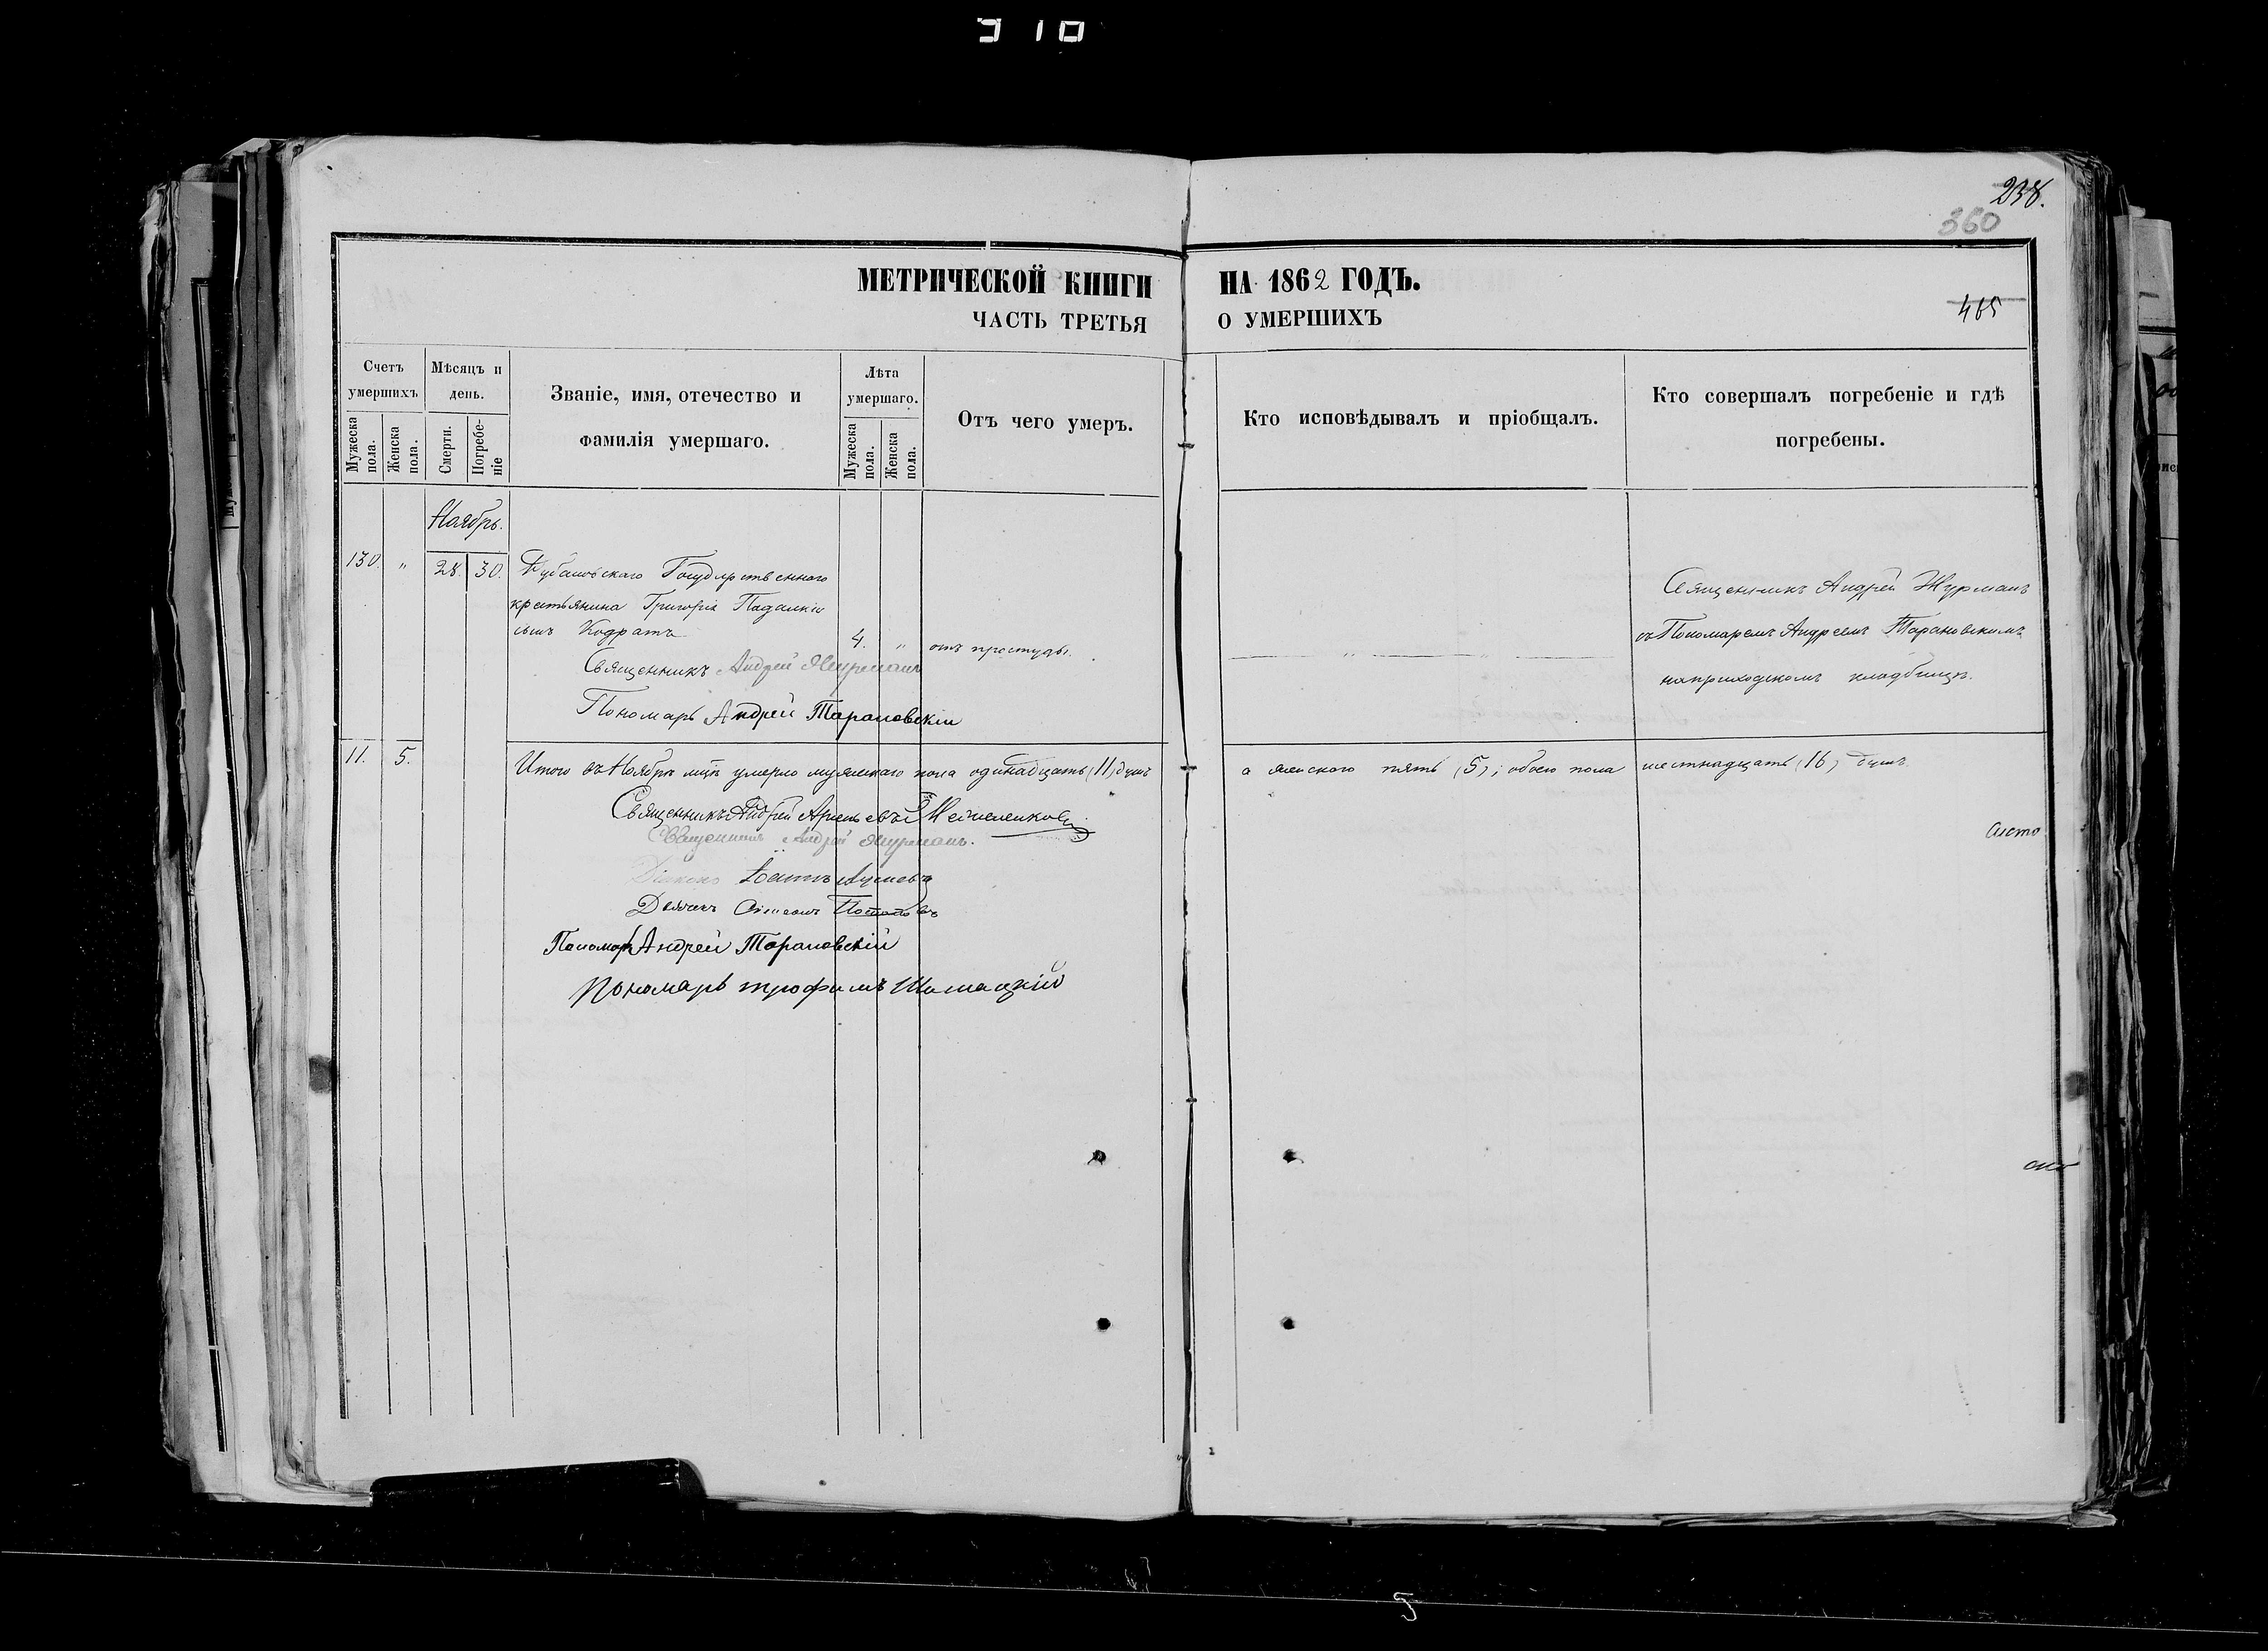 310
238.
360
МЕТРИЧЕСКОЙ КНИГИ НА 1862 ГОДЪ.
465
ЧАСТЬ ТРЕТЬЯ О УМЕРШИХЪ
Счетъ умершихъ
Мужеска пола.
Женска пола.
Мѣсяцъ и день.
Смерти.
Погребе-ніе
Званіе, имя, отечество и фамилія умершаго.
Лѣта умершаго.
Мужеска пола.
Женска пола.
Отъ чего умеръ.
Кто исповѣдывалъ и пріобщалъ.
Кто совершалъ погребеніе и гдѣ погребены.
Ноябрь.
130. " 28. 30.
Государственнаго
крестьянина Григорія
сынъ Кодратъ
4. " отъ простуды.
Священникъ Андрей Журманъ
Пономарь Андрей Тарановскій
Священникъ Андрей Журманъ
съ Пономаремъ Андреемъ Тарановскимъ
на приходскомъ кладбищѣ.
11. 5.
Итого въ Ноябрѣ мцѣ умерло мужескаго пола одинадцать (11) душъ
а женского пять (5); обоего пола шестнадцать (16) душъ.
Священникъ Андрей
Священникъ Андрей Журманъ.
Діаконъ
Дьячекъ
Пономарь Андрей Тарановскій
Пономарь трофимъ Шишацкій